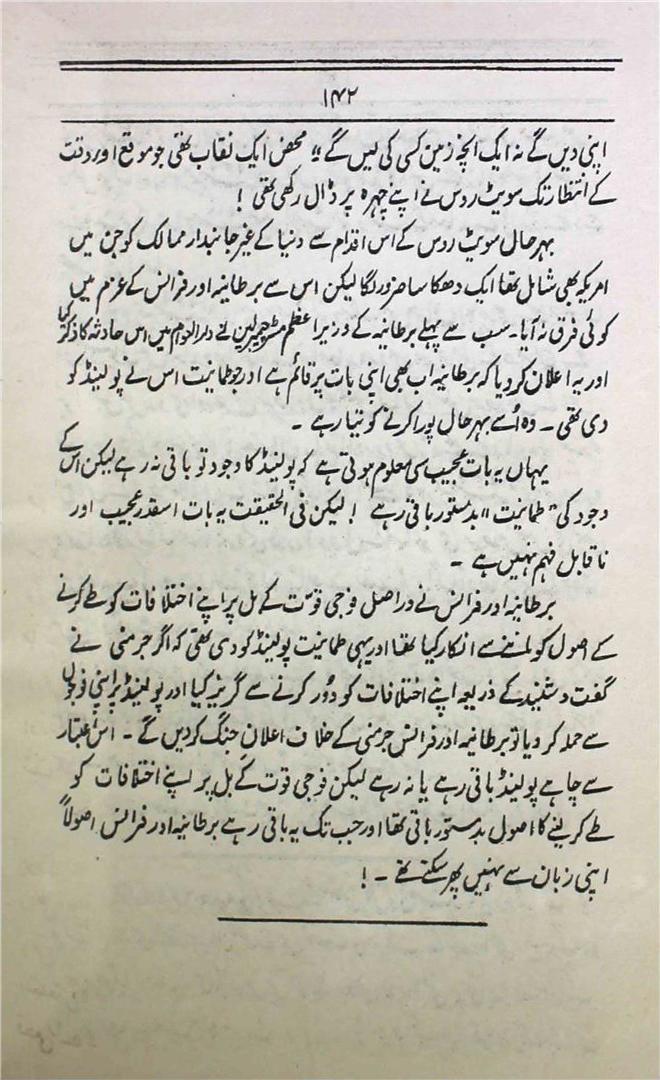 ۱۴۲
اپنی دیں گے نہ ایک انچہ زمین کسی کی لیں گے“ محض ایک نقاب تھی جو موقع اور وقت
کے انتظار تک سویٹ روس نے اپنے چہرہ پر ڈال رکھی تھی !
بہرحال سویٹ روس کے اس اقدام سے دنیا کے غیر جانبدار ممالک کو جن میں
امریکہ بھی شامل تھا ایک دھکا سا ضرور لگا لیکن اس سے برطانیہ اور فرانس کے عزم میں
کوئی فرق نہ آیا۔ سب سے پہلے برطانیہ کے وزیر اعظم مسٹر چیمبرلین نے دار العوام میں اس حادثہ کا ذکر کیا
اور یہ اعلان کر دیا کہ برطانیہ اب بھی اپنی بات پر قائم ہے اور جو طمانیت اس نے پولینڈ کو
دی تھی ۔ وہ اُسے بہرحال پورا کرنے کو تیار ہے ۔
یہاں یہ بات عجیب سی معلوم ہوتی ہے کہ پولینڈ کا وجود تو باقی نہ رہے لیکن اس کے
وجود کی ”طمانیت“ بدستور باقی رہے ! لیکن فی الحقیقت یہ بات اسقدر عجیب اور
ناقابل فہم نہیں ہے ۔
برطانیہ اور فرانس نے دراصل فوجی قوت کے بل پر اپنے اختلافات کو طے کرنے
کے اصول کو ماننے سے انکار کیا تھا اور یہی طمانیت پولینڈ کو دی تھی کہ اگر جرمنی نے
گفت و شنید کے ذریعہ اپنے اختلافات کو دُور کرنے سے گریز کیا اور پولینڈ پر اپنی فوجوں
سے حملہ کر دیا تو برطانیہ اور فرانس جرمنی کے خلاف اعلان جنگ کر دیں گے ۔ اس اعتبار
سے چاہے پولینڈ باقی رہے یا نہ رہے لیکن فوجی قوت کے بل پر اپنے اختلافات کو
طے کرنے کا اصول بدستور باقی تھا اور جب تک یہ باقی رہے برطانیہ اور فرانس اصولاً
اپنی زبان سے نہیں پھر سکتے تھے ۔ !